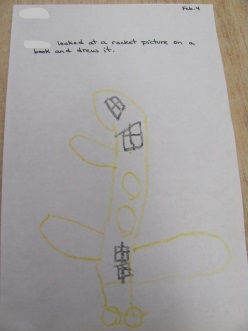 Feb. 4
looked at a rocket picture on a
book and drew it.